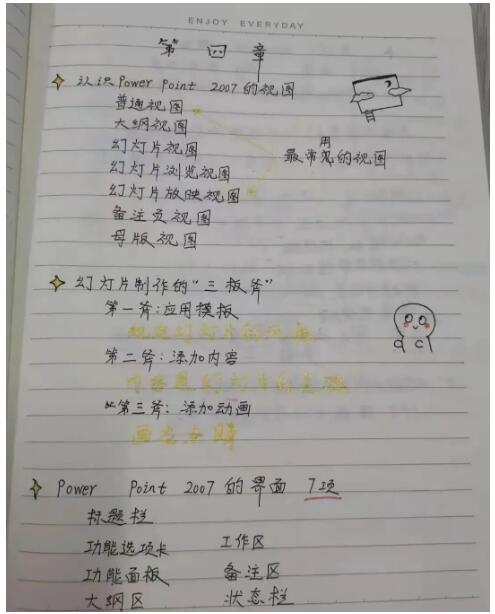 ENJOY EVERYDAY
第四章
认识Power Point 2007的视图
普通视图
大纲视图
幻灯片视图
用
最常见的视图
幻灯片浏览视图
幻灯片放映视图
备注页视图
母版视图
幻灯片制作的“三板斧”
第一斧:应用模板
幻灯片的
第二斧:添加内容
内容是幻灯片的
第三斧:添加动画
画
Power Point 2007的界面 7项
标题栏
功能选项卡 工作区
功能面板 备注区
大纲区 状态栏